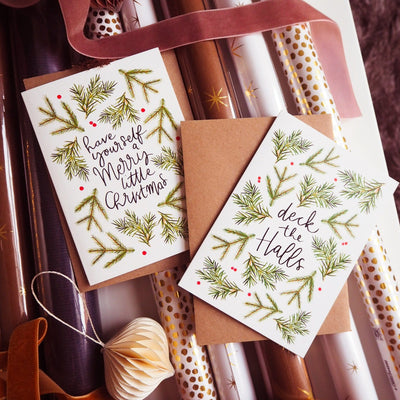 have
yourself
a
Merry
little
Christmas
deck
the
Halls